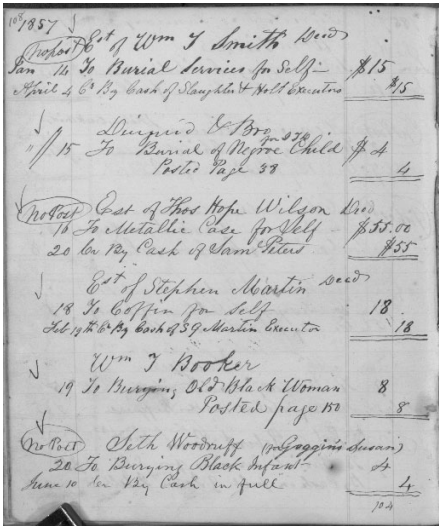 108 1857
no post Est of Wm T Smith Decd
Jan 14 To Burial Services for Self $15
April 4 Cr By Cash of Slaughter & Holt Executors $15
& Bro
" 15 To Burial of Negroe Child $ 4
Posted Page 38 4
No Post Est of Thos Hope Wilson Decd
16 To Metallic Case for Self $55.00
20 Cr By Cash of Sam Peters $55
Est of Stephen Martin Decd
18 To Coffin for Self 18
Feb 19th Cr By Cash of S G Martin Executor 18
Wm T Booker
19 To Burying Old Black Woman 8
Posted page 150 8
No Post Seth Woodruff (for Goggins Susan)
20 To Burying Black Infant 4
June 10 Cr By Cash in full 4
104